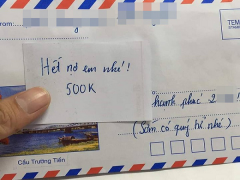 TEM
Hết nợ em nhé!
500K
hạnh phúc 2
(Sắn có quý hề nhé)
Cầu Trường Tiền